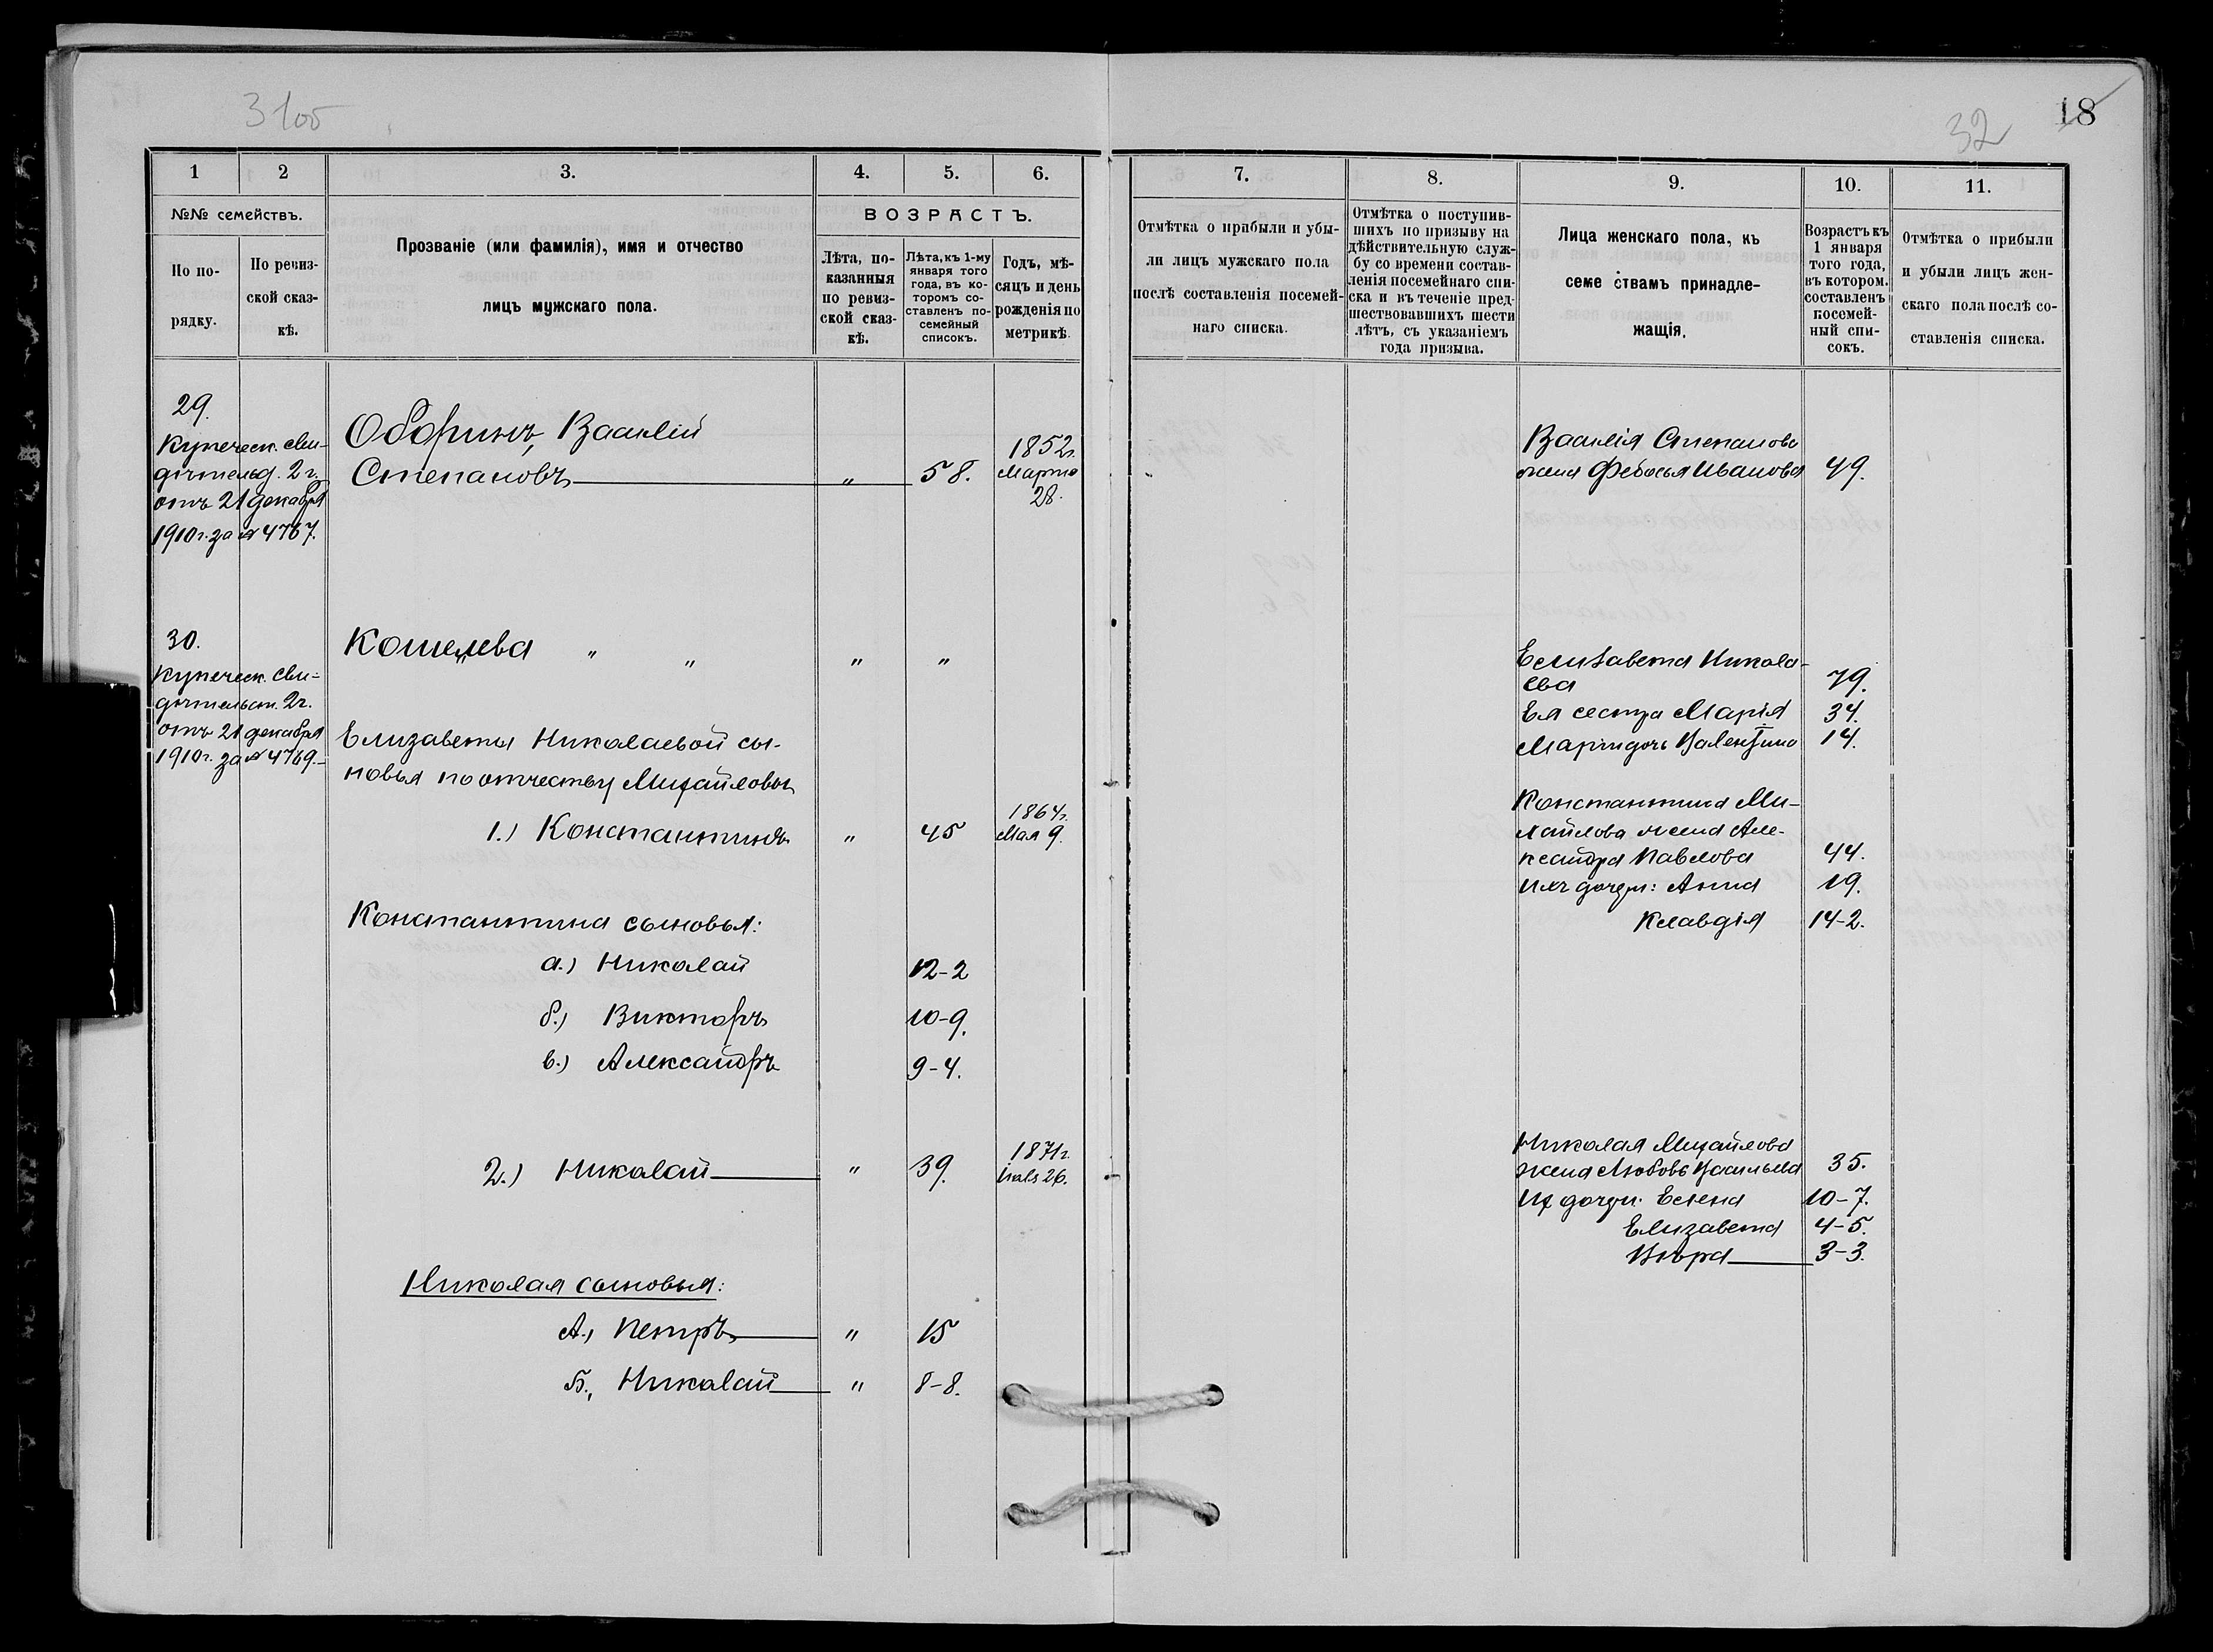 3 100
32
18
1
2
3.
4.
5.
6.
№№ семействъ.
По по-
рядку.
По ревиз-
ской сказ-
кѣ.
Прозваніе (или фамилія), имя и отчество
лицъ мужскаго пола.
ВОЗРАСТЪ.
Лѣта, по-
казанныя
по ревиз-
ской сказ-
кѣ.
Лѣта, къ 1-му
января того
года, въ ко-
торомъ со-
ставленъ по-
семейный
списокъ.
Годъ, мѣ-
сяцъ и день
рожденія по
метрикѣ.
7.
8.
9.
10.
11.
Отмѣтка о прибыли и убы-
ли лицъ мужскаго пола
послѣ составленія посемей-
наго списка.
Отмѣтка о поступив-
шихъ по призыву на
дѣйствительную служ-
бу со времени состав-
ленія посемейнаго спи-
ска и въ теченіе пред-
шествовавшихъ шести
лѣтъ, съ указаніемъ
года призыва.
Лица женскаго пола, къ
семе ствамъ принадле-
жащія.
Возрастъ къ
1 января
того года,
въ котором.
составленъ
посемей-
ный спи-
сокъ.
Отмѣтка о прибыли
и убыли лицъ жен-
скаго пола послѣ со-
ставленія списка.
29.
Купеческ. сви-
дѣтельс. 2 г.
отъ 21 декабря
1910 г. за № 4767.
Оборинъ, Василій
Степановъ " 58.
1852 г.
Марта
28.
Василія Степанова
жена Федосья Иванова 49.
30.
Купеческ. сви-
дѣтельст. 2 г.
отъ 21 декабря
1910 г. за № 4769.
Кошелева " " " "
Елизавета Никола-
ева 79.
Ея сестра Марія 34.
Маріи дочь Валентина 14.
Елизаветы Николаевой сы-
новья по отчеству Михайловы
1.) Константинъ " 45
1864 г.
Мая 9.
Константина Ми-
хайлова жена Але-
ксандра Павлова 44.
Ихъ дочери: Анна 19.
Клавдія 14-2.
Константина сыновья:
а.) Николай 12-2
б.) Викторъ 10-9.
в.) Александръ 9-4.
2.) Николай " 39.
1871 г.
Іюля 26.
Николая Михайлова
жена Любовь Васильева 35.
Их дочери: Елена 10-7.
Елизавета 4-5.
Вѣра 3-3.
Николая сыновья:
А., Петръ " 15
Б., Николай " 8-8.